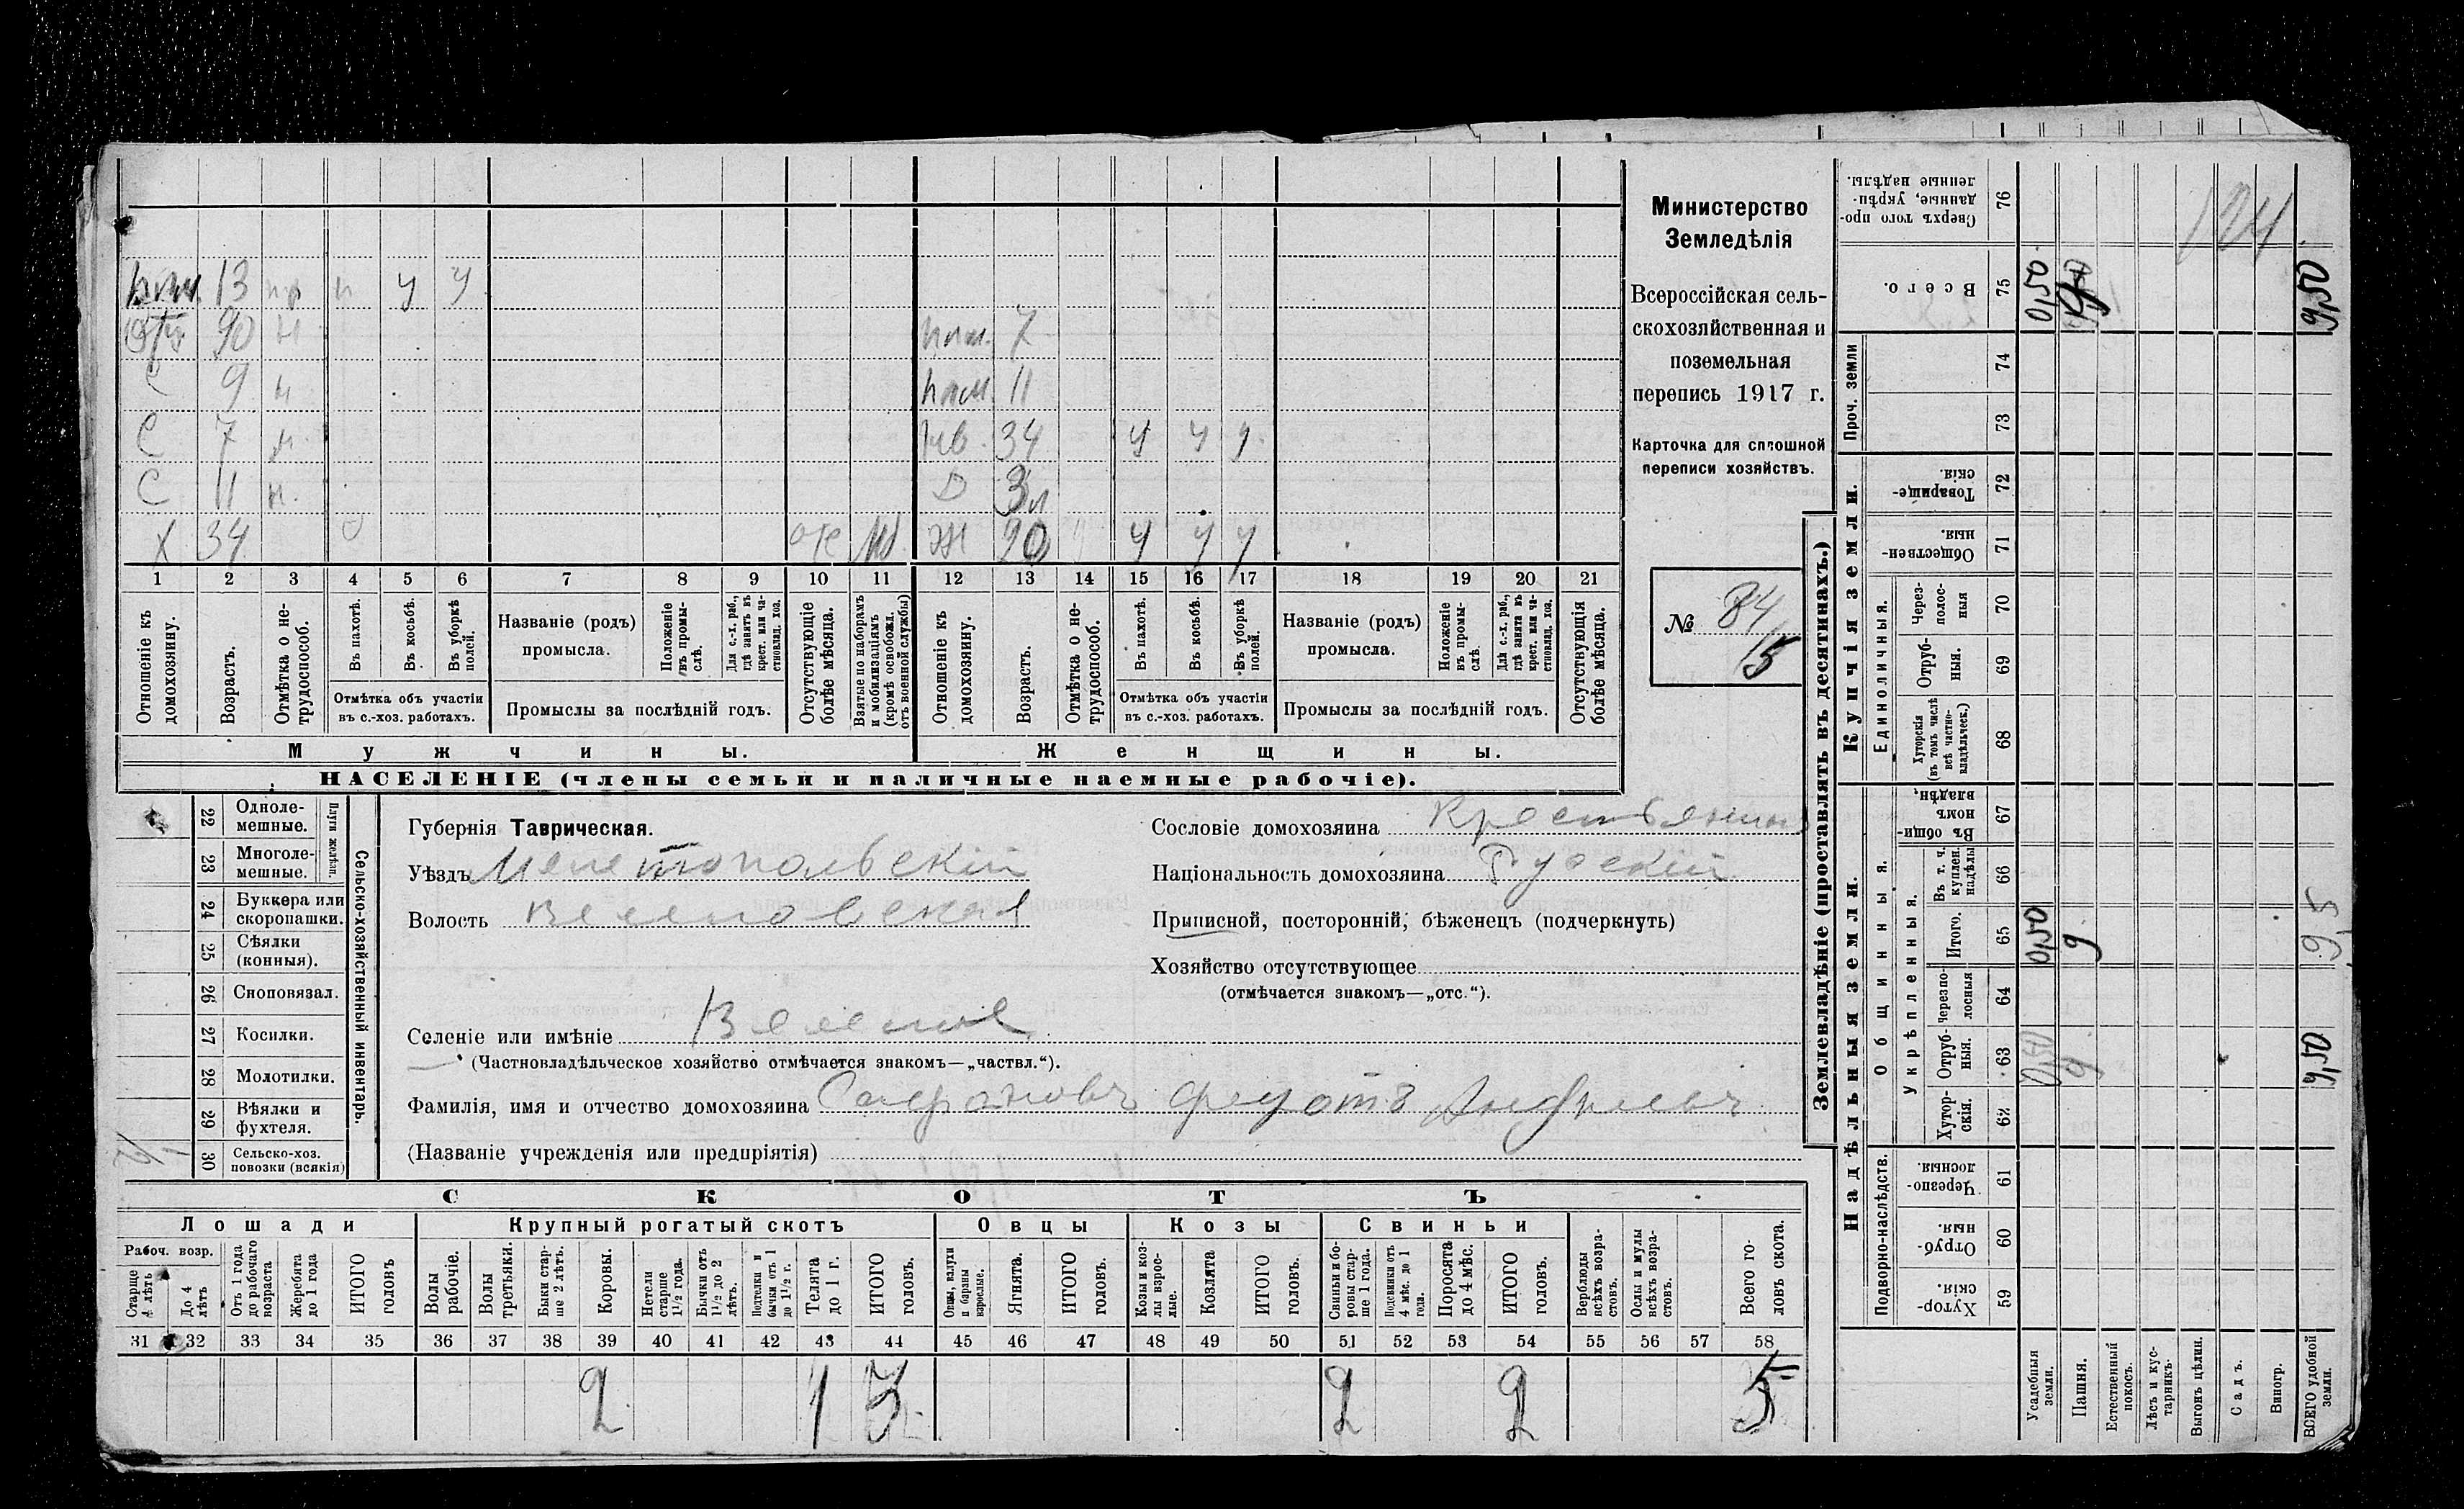 Министерство
Земледѣлія
Всероссійская сель-
скохозяйственная и
поземельная
перепись 1917 г.
Карточка для сплошной
переписи хозяйствъ.
№ 84
15
плм. 13 нр п у у
Отц 90 н
плм. 7
С 9 н
плм 11
С 7 н
нв. 34 у у у
С 11 н.
D 3 л
Х 34 отс М Ж 20 у у у
1 2 3 4 5 6 7 8 9 10 11 12 13 14 15 16 17 18 19 20 21
Отношеніе къ домохозяину.
Возрастъ.
Отмѣтка о не-трудоспособ.
Въ пахотѣ.
Въ косьбѣ.
Въ уборкѣ полей.
Отмѣтка объ участіи
въ с.-хоз. работахъ.
Названіе (родъ)
промысла.
Положеніе въ промы-слѣ.
Для с.-х. раб., гдѣ занятъ въ крест. или ча-стновлад. хоз.
Промыслы за послѣдній годъ.
Отсутствующіе болѣе мѣсяца.
Взятые по наборамъ и мобилизаціямъ (кромѣ освобожд. отъ военной службы)
Отношеніе къ домохозяину.
Возрастъ.
Отмѣтка о не-трудоспособ.
Въ пахотѣ.
Въ косьбѣ.
Въ уборкѣ полей.
Отмѣтка объ участіи
въ с.-хоз. работахъ.
Названіе (родъ)
промысла.
Положеніе въ промы-слѣ.
Для с.-х. раб., гдѣ занята въ крест. или ча-стновлад. хоз.
Промыслы за послѣдній годъ.
Отсутствующія болѣе мѣсяца.
Мужчины.
Женщины.
НАСЕЛЕНІЕ (члены семьи и наличные наемные рабочіе).
Сельско-хозяйственный инвентарь.
Плуги желѣзн.
22 Одноле-мешные.
23 Многоле-мешные.
24 Буккера или скоропашки.
25 Сѣялки (конныя).
26 Сноповязал.
27 Косилки.
28 Молотилки.
29 Вѣялки и фухтеля.
30 Сельско-хоз. повозки (всякія) 1/2
Губернія Таврическая.
Уѣздъ Мелитопольскій
Волость Веселовская
Селеніе или имѣніе Веселое
(Частновладѣльческое хозяйство отмѣчается знакомъ—„частвл.“).
Фамилія, имя и отчество домохозяина Сафроновъ Федотъ Андреевъ
(Названіе учрежденія или предпріятія)
Сословіе домохозяина Крестьянинъ
Національность домохозяина Русскій
Приписной, посторонній, бѣженецъ (подчеркнуть)
Хозяйство отсутствующее
(отмѣчается знакомъ—„отс.“).
СКОТЪ
Лошади
Крупный рогатый скотъ
Овцы
Козы
Свиньи
Рабоч. возр.
Старше 4 лѣтъ
До 4 лѣтъ
Отъ 1 года до рабочаго возраста
Жеребята до 1 года
ИТОГО головъ
Волы рабочіе.
Волы третьяки.
Быки стар-ше 2 лѣтъ.
Коровы.
Нетели старше 1½ года.
Бычки отъ 1½ до 2 лѣтъ.
Подтелки и бычки отъ 1 до 1½ г.
Телята до 1 г.
ИТОГО головъ.
Овцы, валухи и бараны взрослые.
Ягнята.
ИТОГО головъ.
Козы и коз-лы взрос-лые.
Козлята
ИТОГО головъ.
Свиньи и бо-ровы стар-ше 1 года.
Подсвинки отъ 4 мѣс. до 1 года.
Поросята до 4 мѣс.
ИТОГО головъ.
Верблюды всѣхъ возра-стовъ.
Ослы и мулы всѣхъ возра-стовъ.
Всего го-ловъ скота.
31 32 33 34 35 36 37 38 39 40 41 42 43 44 45 46 47 48 49 50 51 52 53 54 55 56 57 58
2 1 3 2 2 5
Землевладѣніе (проставлять въ десятинахъ.)
Купчія земли.
Надѣльныя земли.
Проч. земли
Единоличныя.
Общинныя.
Укрѣпленныя.
Подворно-наслѣдств.
Сверхъ того про-данные, укрѣп-ленные надѣлы. 76
124
Всего. 75 0,50 9,50
74
73
Товарище-скія. 72
Обществен-ныя. 71
Через-полос-ныя 70
Отруб-ныя. 69
Хуторскія (въ томъ числѣ всѣ частно-владѣльческ.) 68
Въ общин-номъ владѣн. 67
Въ т. ч. куплен. надѣлы 66
Итого. 65 0,50 9 9,5
Черезпо-лосныя 64
Отруб-ныя. 63 0,50 9 9,50
Хутор-скія. 62
Черезпо-лосныя. 61
Отруб-ныя. 60
Хутор-скія. 59
Усадебныя земли.
Пашня.
Естественный покосъ.
Лѣсъ и кус-тарникъ.
Выгонъ цѣлин.
Садъ.
Виногр.
ВСЕГО удобной земли.